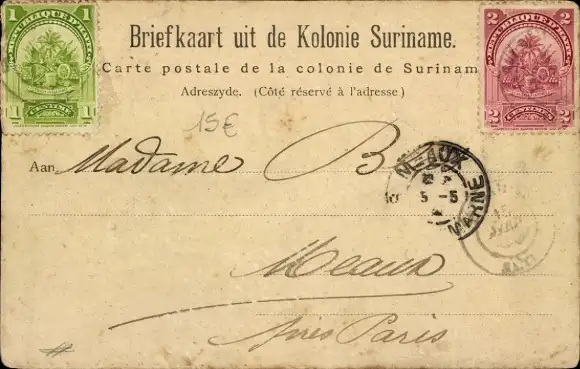 1 REPUBLIQUE D'HAITI 1
1 CENTIME 1
2 REPUBLIQUE D'HAITI 2
2 CENTIMES 2
Briefkaart uit de Kolonie Suriname.
Carte postale de la colonie de Surinam
Adreszyde. (Côté réservé à l'adresse)
15€
Aan Madame B
MEAUX
5 -5
MARNE
Meaux
Paris